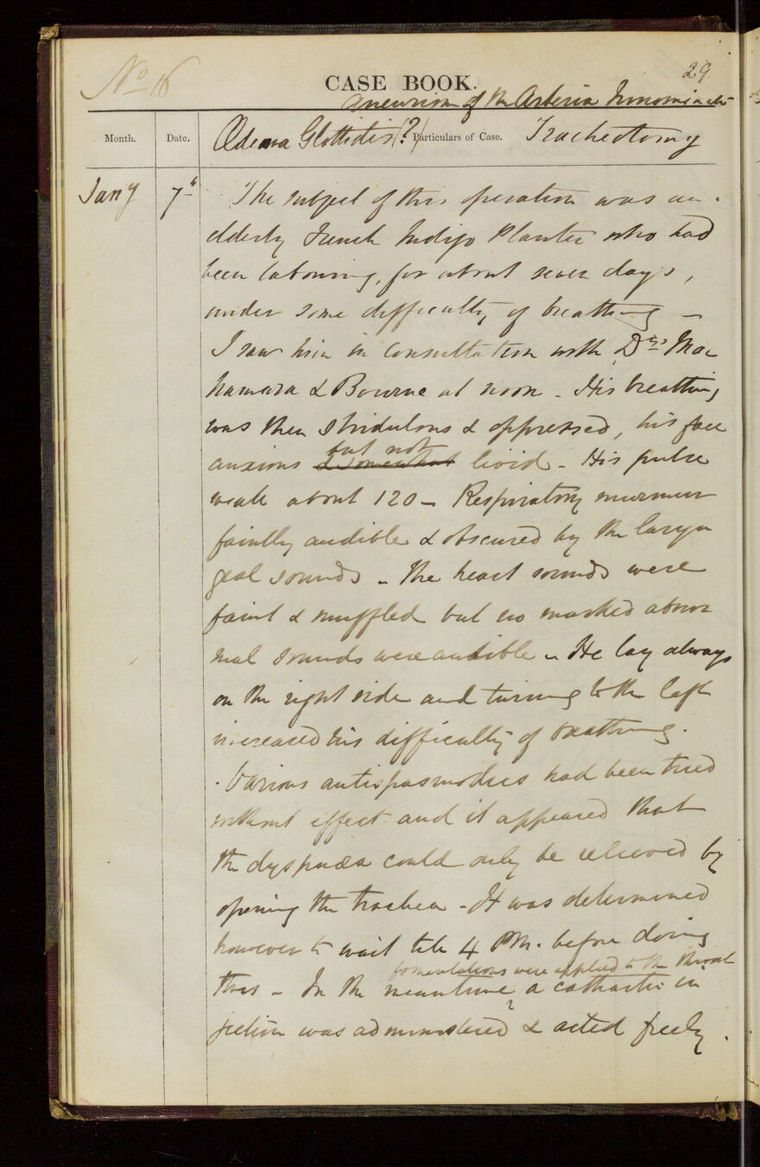 No 16
29
CASE BOOK.
Aneurism of the Arteria Innominata
Month. Date. Particulars of Case.
Œdema Glottidis (?) Tracheotomy
Jany 7th The subject of this operation was an
elderly French Indigo Planter who had
been labouring, for about seven days,
under some difficulty of breathing –
I saw him in consultation with Drs Mac
namara & Bourne at noon – His breathing
was then stridulous & oppressed, his face
anxious & somewhat but not livid – His pulse
weak about 120 – Respiratory murmur
faintly audible & obscured by the laryn
geal sounds – The heart sounds were
faint & muffled but no marked abnor
mal sounds were audible – He lay always
on the right side and turning to the left
increased his difficulty of breathing.
Various antispasmodics had been tried
without effect and it appeared that
the dyspnœa could only be relieved by
opening the trachea – It was determined
however to wait till 4 P.M. before doing
fomentations were applied to the throat
this – In the meantime a cathartic in
jection was administered & acted freely.